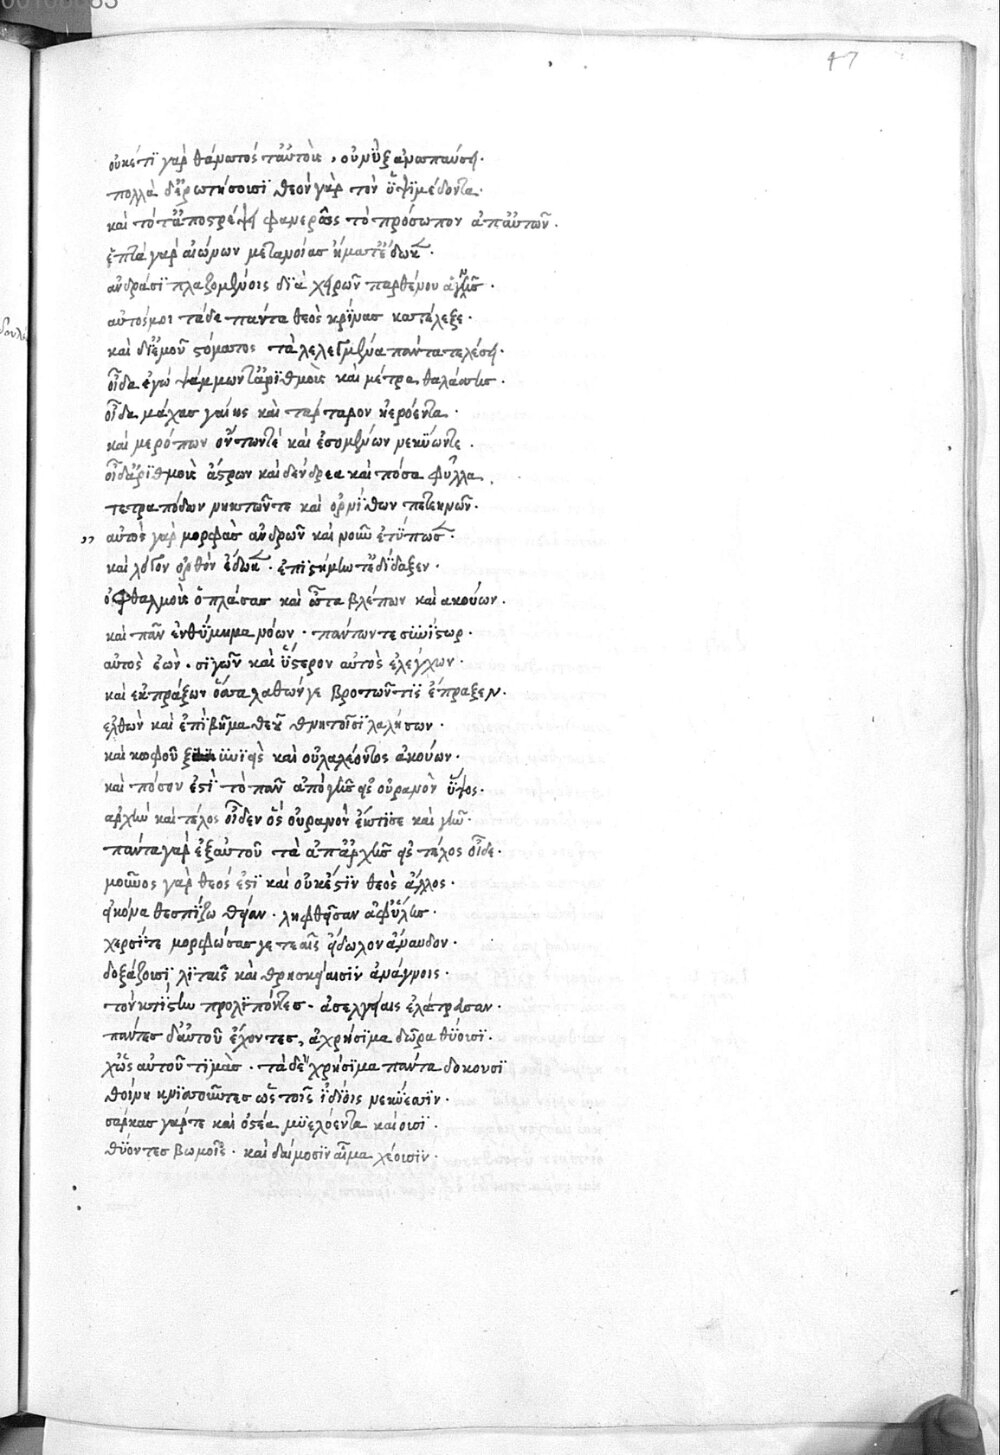 47
οὐκέτι γὰρ θάνατός τ' αὐτοῖς, οὐ νὺξ ἀναπαύσει.
πολλὰ δ' ἐρωτήσοισι θεὸν γὰρ τὸν ὑψιμέδοντα.
καὶ τότ' ἀποστρέψει φανερῶς τὸ πρόσωπον ἀπ' αὐτῶν.
ἑπτὰ γὰρ αἰώνων μετανοίας ἤματ' ἔδωκε.
ἀνδράσι πλαζομένοις διὰ χειρῶν παρθένου ἁγνῆς.
αὐτός μοι τάδε πάντα θεὸς κρίνας κατέλεξε.
καὶ δι' ἐμοῦ στόματος τὰ λελεγμένα πάντα τελέσει.
οἶδα ἐγὼ ψάμμων τ' ἀριθμοὺς καὶ μέτρα θαλάσσης.
οἶδα μύχας γαίης καὶ τάρταρον ἠερόεντα.
καὶ μερόπων ὄντων τε καὶ ἐσομένων νεκύων τε.
οἶδ' ἀριθμοὺς ἄστρων καὶ δένδρεα καὶ πόσα φύλλα
τετραπόδων νηκτῶν τε καὶ ὀρνίθων πετεηνῶν.
,, αὐτὸς γὰρ μορφὰς ἀνδρῶν καὶ νοῦν ἐτύπωσε.
καὶ λόγον ὀρθὸν ἔδωκε. ἐπιστήμην τ' ἐδίδαξεν.
ὀφθαλμοὺς ὁ πλάσας καὶ ὦτα βλέπων καὶ ἀκούων.
καὶ πᾶν ἐνθύμημα νόων. πάντων τε συνίστωρ.
αὐτὸς ἐών. σιγῶν καὶ ὕστερον αὐτὸς ἐλέγχων.
καὶ ἐκπράξων ὅσσα λαθών γε βροτῶν τις ἔπραξεν.
ἐλθὼν καὶ ἐπὶ βῆμα θεοῦ θνητοῖσι λαλήσων.
καὶ κωφοῦ ξυνίησι καὶ οὐ λαλέοντος ἀκούων.
καὶ πόσον ἐστὶ τὸ πᾶν ἀπὸ γῆς εἰς οὐρανὸν ὕψος.
ἀρχὴν καὶ τέλος οἶδεν ὃς οὐρανὸν ἔκτισε καὶ γῆν.
πάντα γὰρ ἐξ αὐτοῦ τὰ ἀπ' ἀρχῆς εἰς τέλος οἶδε.
μοῦνος γὰρ θεός ἐστι καὶ οὐκ ἔστιν θεὸς ἄλλος.
εἰκόνα θεσπίζω θείαν. ληφθεῖσαν ἀφ' ὕλης.
χερσί τε μορφώσας γε τεαῖς εἴδωλον ἄναυδον.
δοξάζοισι λιταῖς καὶ θρησκείαισιν ἀνάγνοις.
τὸν κτίστην προλιπόντες. ἀσελγείαις ἐλάτρευσαν.
πάντες δ' αὐτοῦ ἔχοντες, ἀχρήσιμα δῶρα θύοισι.
χ' ὡς αὐτοῦ τιμάς. τάδε χρήσιμα πάντα δοκουσι
θοίνῃ κνισσοῦντες ὡς τοῖς ἰδίοις νεκύεσσιν.
σάρκας γάρ τε καὶ ὀστέα μυελόεντα καίοισι.
θύοντες βωμοῖς. καὶ δαίμοσιν αἷμα χέοισιν.